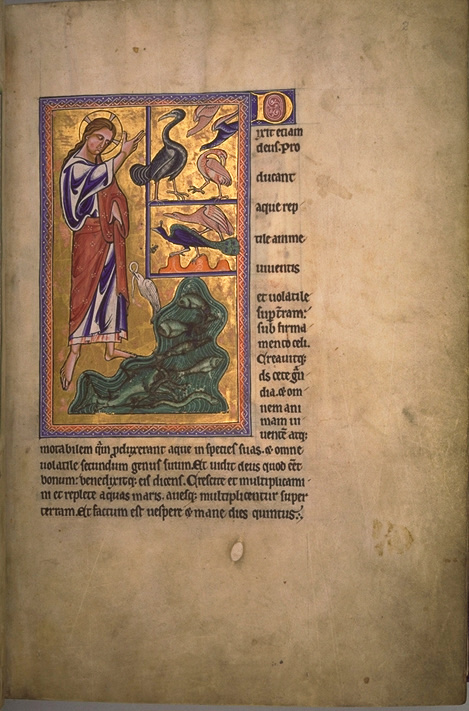 D
ixit etiam
deus. pro
ducant
aque rep
tile anime
uiuentis
et uolatile
sup tram:
sub firma
mento celi.
Creauitq;
ds cete
dia. & om
nem ani
mam ui
uente atq;
motabilem qm pduxerant aque in species suas. & omne
uolatile secundum genus suum. Et uidit deus quod eet
bonum: benedixitq; eis dicens. Crescite et multiplicami
ni et replete aquas maris. auesq; multiplicentur super
terram. Et factum est uespere & mane dies quintus.